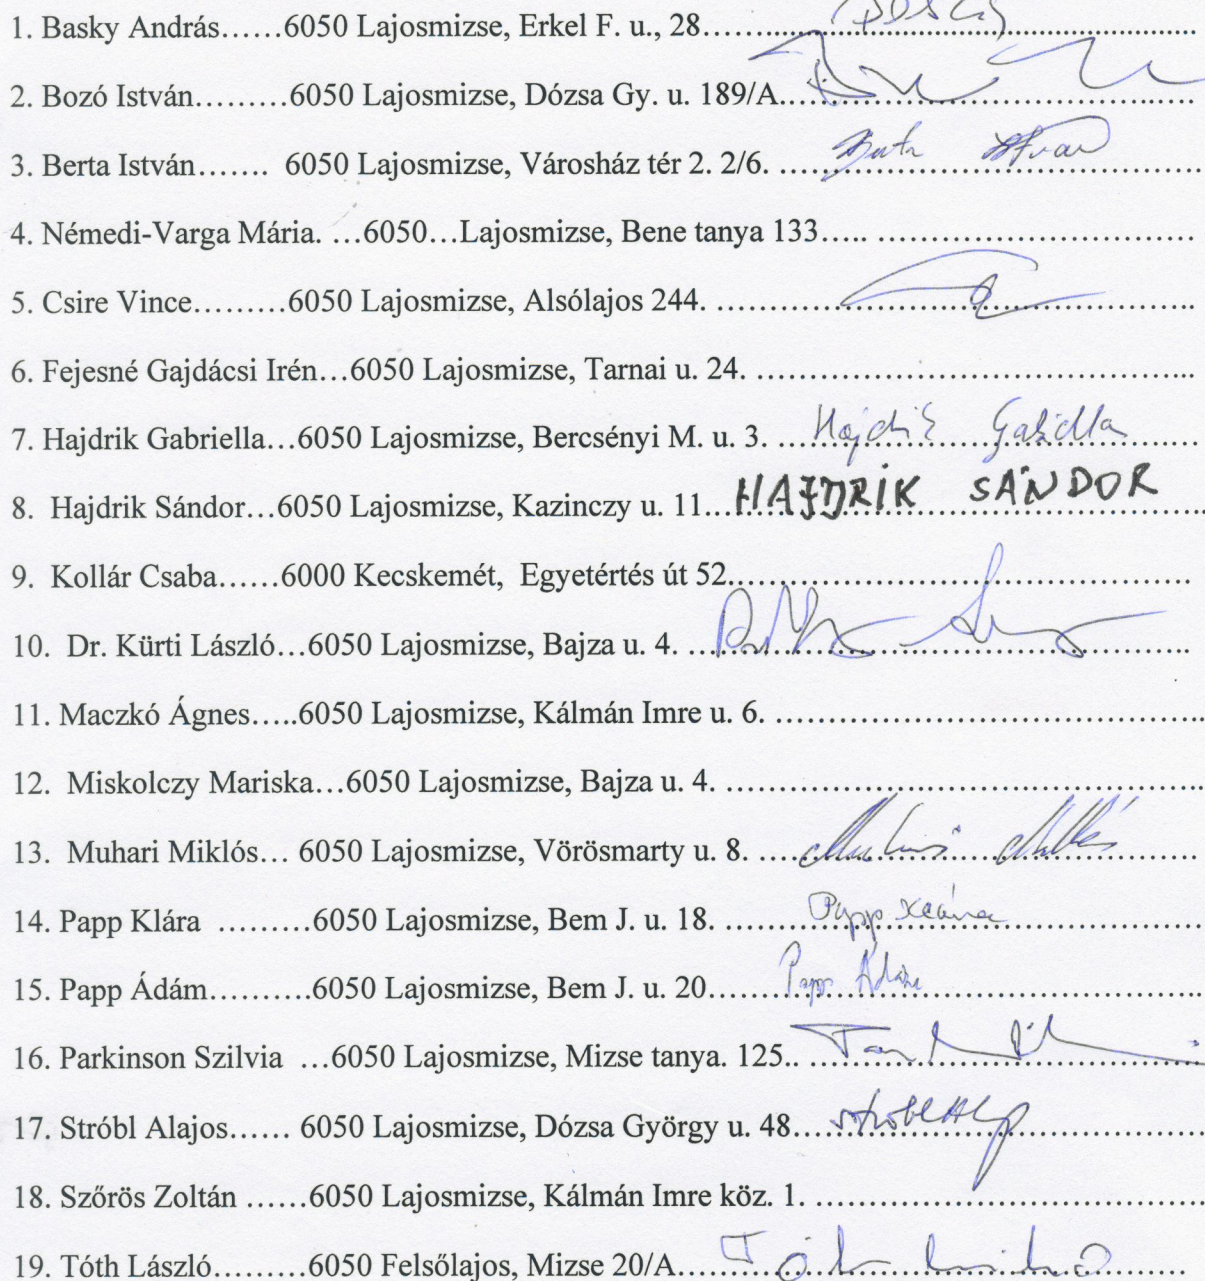 1. Basky András……6050 Lajosmizse, Erkel F. u., 28…………………………………………
2. Bozó István………6050 Lajosmizse, Dózsa Gy. u. 189/A……………………………………
3. Berta István……. 6050 Lajosmizse, Városház tér 2. 2/6. ……………………………………
4. Némedi-Varga Mária. …6050…Lajosmizse, Bene tanya 133….. ……………………………
5. Csire Vince………6050 Lajosmizse, Alsólajos 244. …………………………………………
6. Fejesné Gajdácsi Irén…6050 Lajosmizse, Tarnai u. 24. ……………………………………...
7. Hajdrik Gabriella…6050 Lajosmizse, Bercsényi M. u. 3. …Hajdrik Gabriella……
8. Hajdrik Sándor…6050 Lajosmizse, Kazinczy u. 11…HAJDRIK SÁNDOR
9. Kollár Csaba……6000 Kecskemét, Egyetértés út 52……………………………………
10. Dr. Kürti László…6050 Lajosmizse, Bajza u. 4. …………………………………………
11. Maczkó Ágnes…..6050 Lajosmizse, Kálmán Imre u. 6. ……………………………………
12. Miskolczy Mariska…6050 Lajosmizse, Bajza u. 4. …………………………………………
13. Muhari Miklós… 6050 Lajosmizse, Vörösmarty u. 8. ….Muhari Miklós………
14. Papp Klára ………6050 Lajosmizse, Bem J. u. 18. ………Papp Klára…………
15. Papp Ádám……….6050 Lajosmizse, Bem J. u. 20……Papp Ádám……………
16. Parkinson Szilvia …6050 Lajosmizse, Mizse tanya. 125.. ……………………………………
17. Stróbl Alajos…… 6050 Lajosmizse, Dózsa György u. 48……………………………………
18. Szőrös Zoltán ……6050 Lajosmizse, Kálmán Imre köz. 1. …………………………………
19. Tóth László………6050 Felsőlajos, Mizse 20/A……Tóth László……